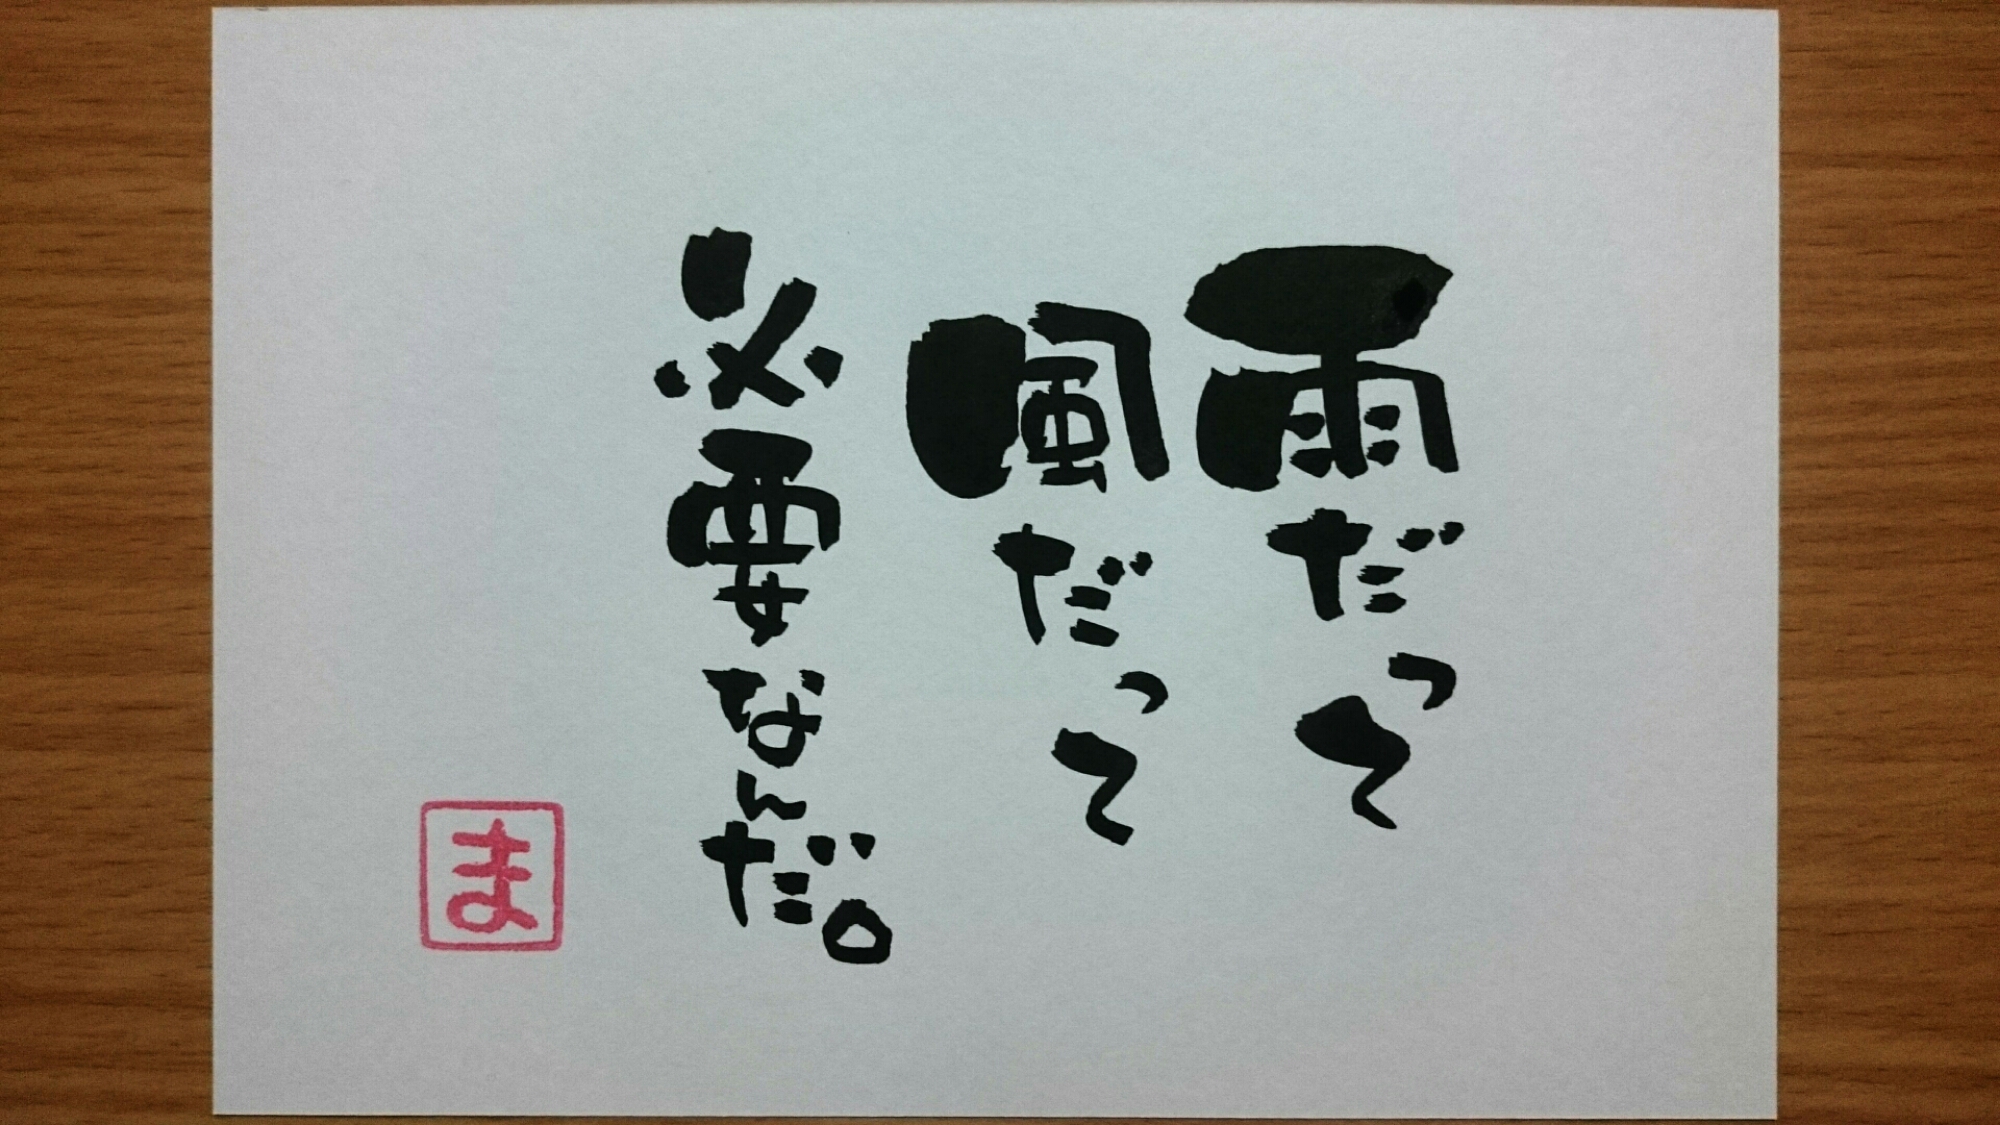 雨だって
風だって
必要なんだ。
ま